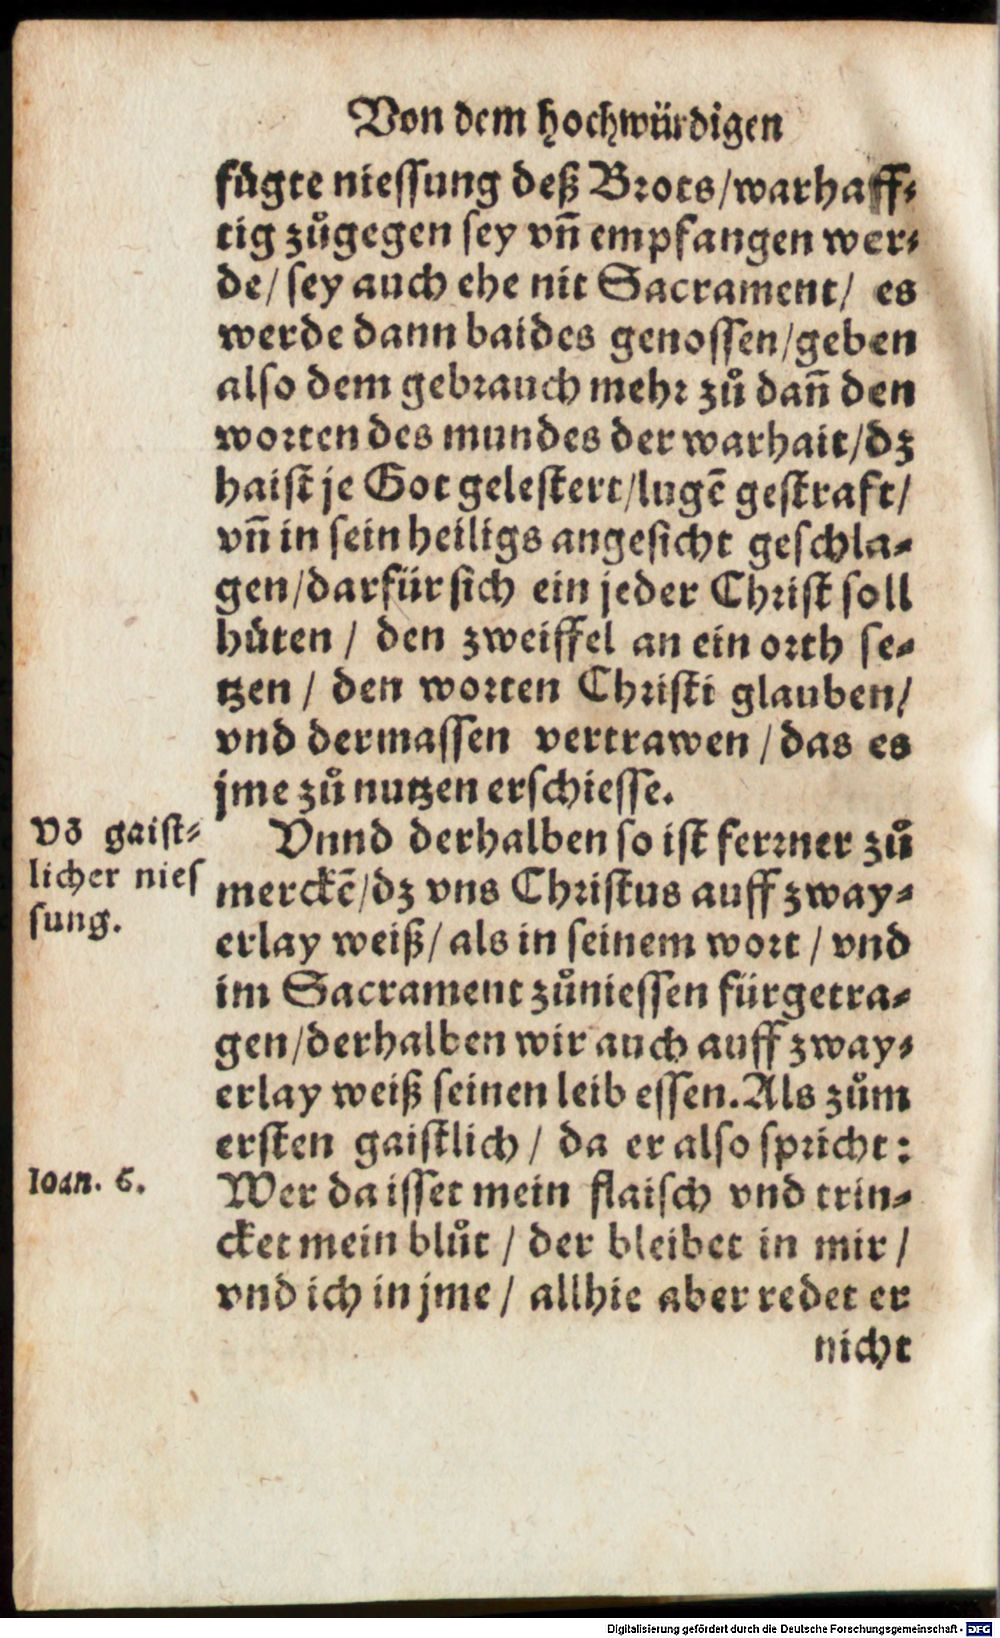 Von dem hochwürdigen
fuͤgte niessung deß Brots/warhaff⸗
tig zůgegen sey vñ empfangen wer⸗
de/ sey auch ehe nit Sacrament/ es
werde dann baides genossen/geben
also dem gebrauch mehr zů dañ den
worten des mundes der warhait/dz
haist je Got gelestert/lugē gestraft/
vñ in sein heiligs angesicht geschla⸗
gen/darfür sich ein jeder Christ soll
huͤten / den zweiffel an ein orth se⸗
tzen / den worten Christi glauben/
vnd dermassen vertrawen / das es
jme zů nutzen erschiesse.
Võ gaist⸗
licher nies
sung.
Vnnd derhalben so ist ferrner zů
merckē/dz vns Christus auff zway⸗
erlay weiß/ als in seinem wort / vnd
im Sacrament zůniessen fürgetra⸗
gen/derhalben wir auch auff zway⸗
erlay weiß seinen leib essen. Als zům
ersten gaistlich / da er also spricht:
Ioan. 6.
Wer da isset mein flaisch vnd trin⸗
cket mein blůt / der bleibet in mir /
vnd ich in jme / allhie aber redet er
nicht
Digitalisierung gefördert durch die Deutsche Forschungsgemeinschaft - DFG